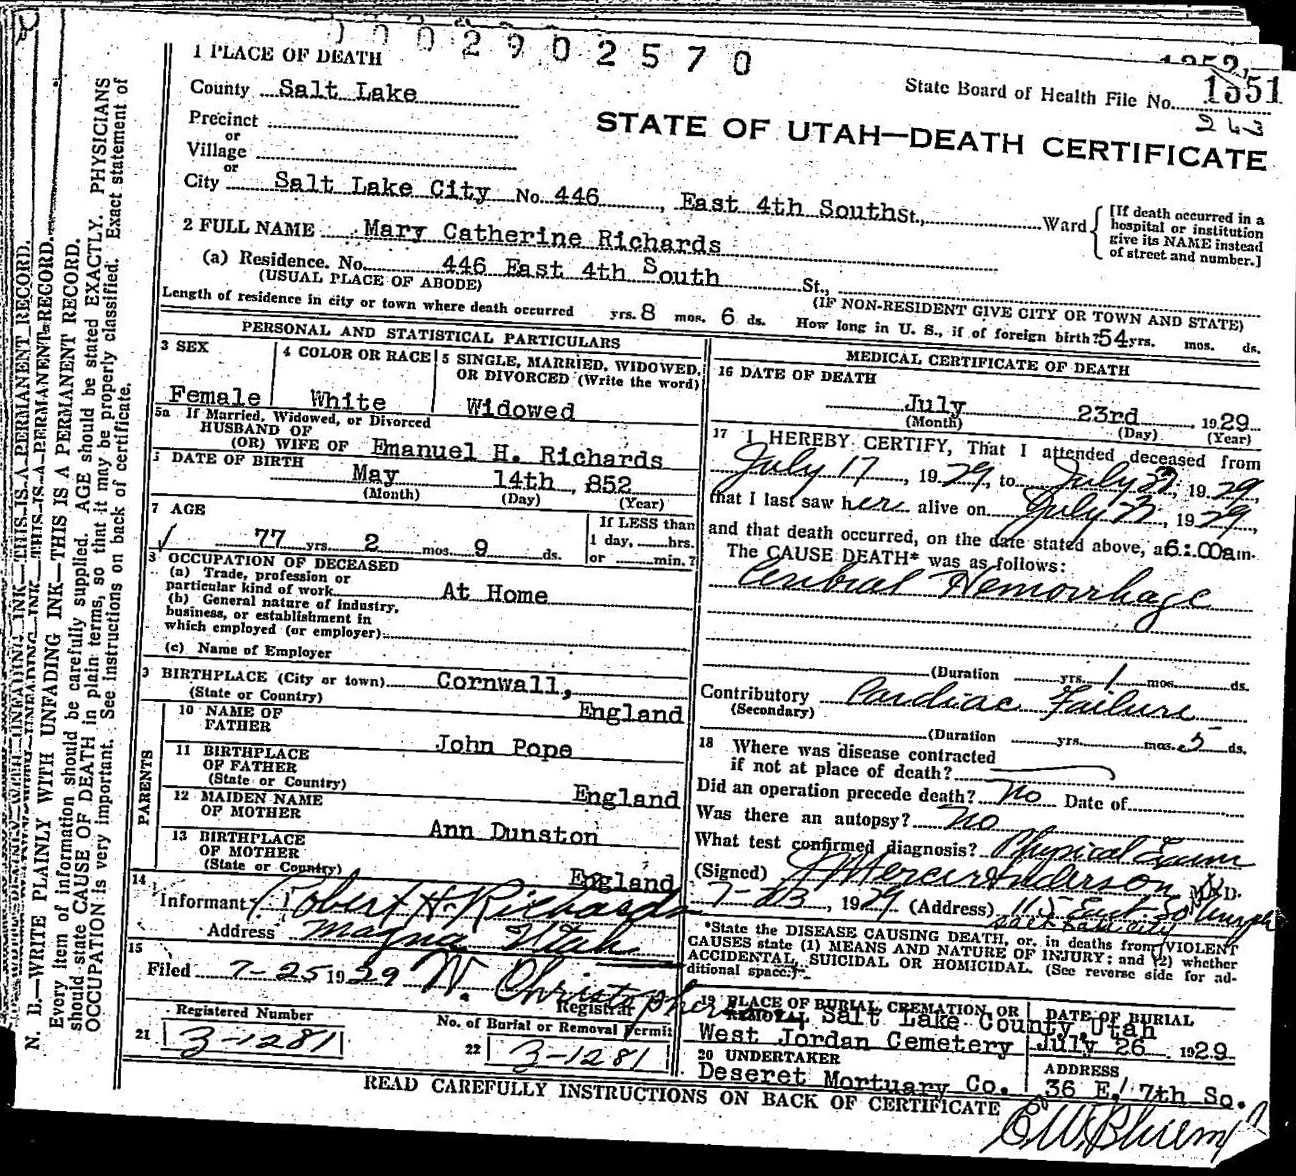 0002902570
1 PLACE OF DEATH
County Salt Lake
State Board of Health File No. 1351
243
Precinct
or
Village
STATE OF UTAH—DEATH CERTIFICATE
or
City Salt Lake City No. 446, East 4th South St., Ward
[If death occurred in a hospital or institution give its NAME instead of street and number.]
2 FULL NAME Mary Catherine Richards
(a) Residence. No. 446 East 4th South St.,
(USUAL PLACE OF ABODE)
(IF NON-RESIDENT GIVE CITY OR TOWN AND STATE)
Length of residence in city or town where death occurred yrs. 8 mos. 6 ds. How long in U. S., if of foreign birth? 54 yrs. mos. ds.
PERSONAL AND STATISTICAL PARTICULARS
3 SEX
Female
4 COLOR OR RACE
White
5 SINGLE, MARRIED, WIDOWED, OR DIVORCED (Write the word)
Widowed
5a If Married, Widowed, or Divorced
HUSBAND OF
(OR) WIFE OF Emanuel H. Richards
DATE OF BIRTH
May 14th, 852
(Month) (Day) (Year)
7 AGE
77 yrs. 2 mos. 9 ds.
If LESS than
1 day, hrs.
or min.?
OCCUPATION OF DECEASED
(a) Trade, profession or
particular kind of work At Home
(b) General nature of industry,
business, or establishment in
which employed (or employer)
(c) Name of Employer
BIRTHPLACE (City or town) Cornwall,
(State or Country) England
PARENTS
10 NAME OF
FATHER John Pope
11 BIRTHPLACE
OF FATHER
(State or Country) England
12 MAIDEN NAME
OF MOTHER Ann Dunston
13 BIRTHPLACE
OF MOTHER
(State or Country) England
14
Informant Robert H. Richards
Address Magna Utah
15
Filed 7-25 1929 W. Christopherson
Registrar
Registered Number
21 3-1281
No. of Burial or Removal Permit
22 3-1281
MEDICAL CERTIFICATE OF DEATH
16 DATE OF DEATH
July 23rd 1929
(Month) (Day) (Year)
17 I HEREBY CERTIFY, That I attended deceased from
July 17, 1929, to July 22, 1929,
that I last saw her alive on July 22, 1929,
and that death occurred, on the date stated above, at 6:00am.
The CAUSE DEATH* was as follows:
Ceribral Hemorrhage
(Duration yrs. 1 mos. ds.
Contributory Cardiac Failure
(Secondary)
(Duration yrs. mos. 5 ds.
18 Where was disease contracted
if not at place of death?
Did an operation precede death? No Date of
Was there an autopsy? No
What test confirmed diagnosis? Physical Exam
(Signed) J Mercer Anderson M.D.
7-23, 1929 (Address) 115 East So
Salt Lake City
*State the DISEASE CAUSING DEATH, or, in deaths from VIOLENT
CAUSES state (1) MEANS AND NATURE OF INJURY; and (2) whether
ACCIDENTAL, SUICIDAL OR HOMICIDAL. (See reverse side for ad-
ditional space.)
19 PLACE OF BURIAL, CREMATION, OR
REMOVAL Salt Lake County, Utah
West Jordan Cemetery
DATE OF BURIAL
July 26 1929
20 UNDERTAKER
Deseret Mortuary Co.
ADDRESS
36 E. 7th So.
READ CAREFULLY INSTRUCTIONS ON BACK OF CERTIFICATE
N. B.—WRITE PLAINLY WITH UNFADING INK—THIS IS A PERMANENT RECORD.
Every item of information should be carefully supplied. AGE should be stated EXACTLY. PHYSICIANS
should state CAUSE OF DEATH in plain terms, so that it may be properly classified. Exact statement of
OCCUPATION is very important. See instructions on back of certificate.